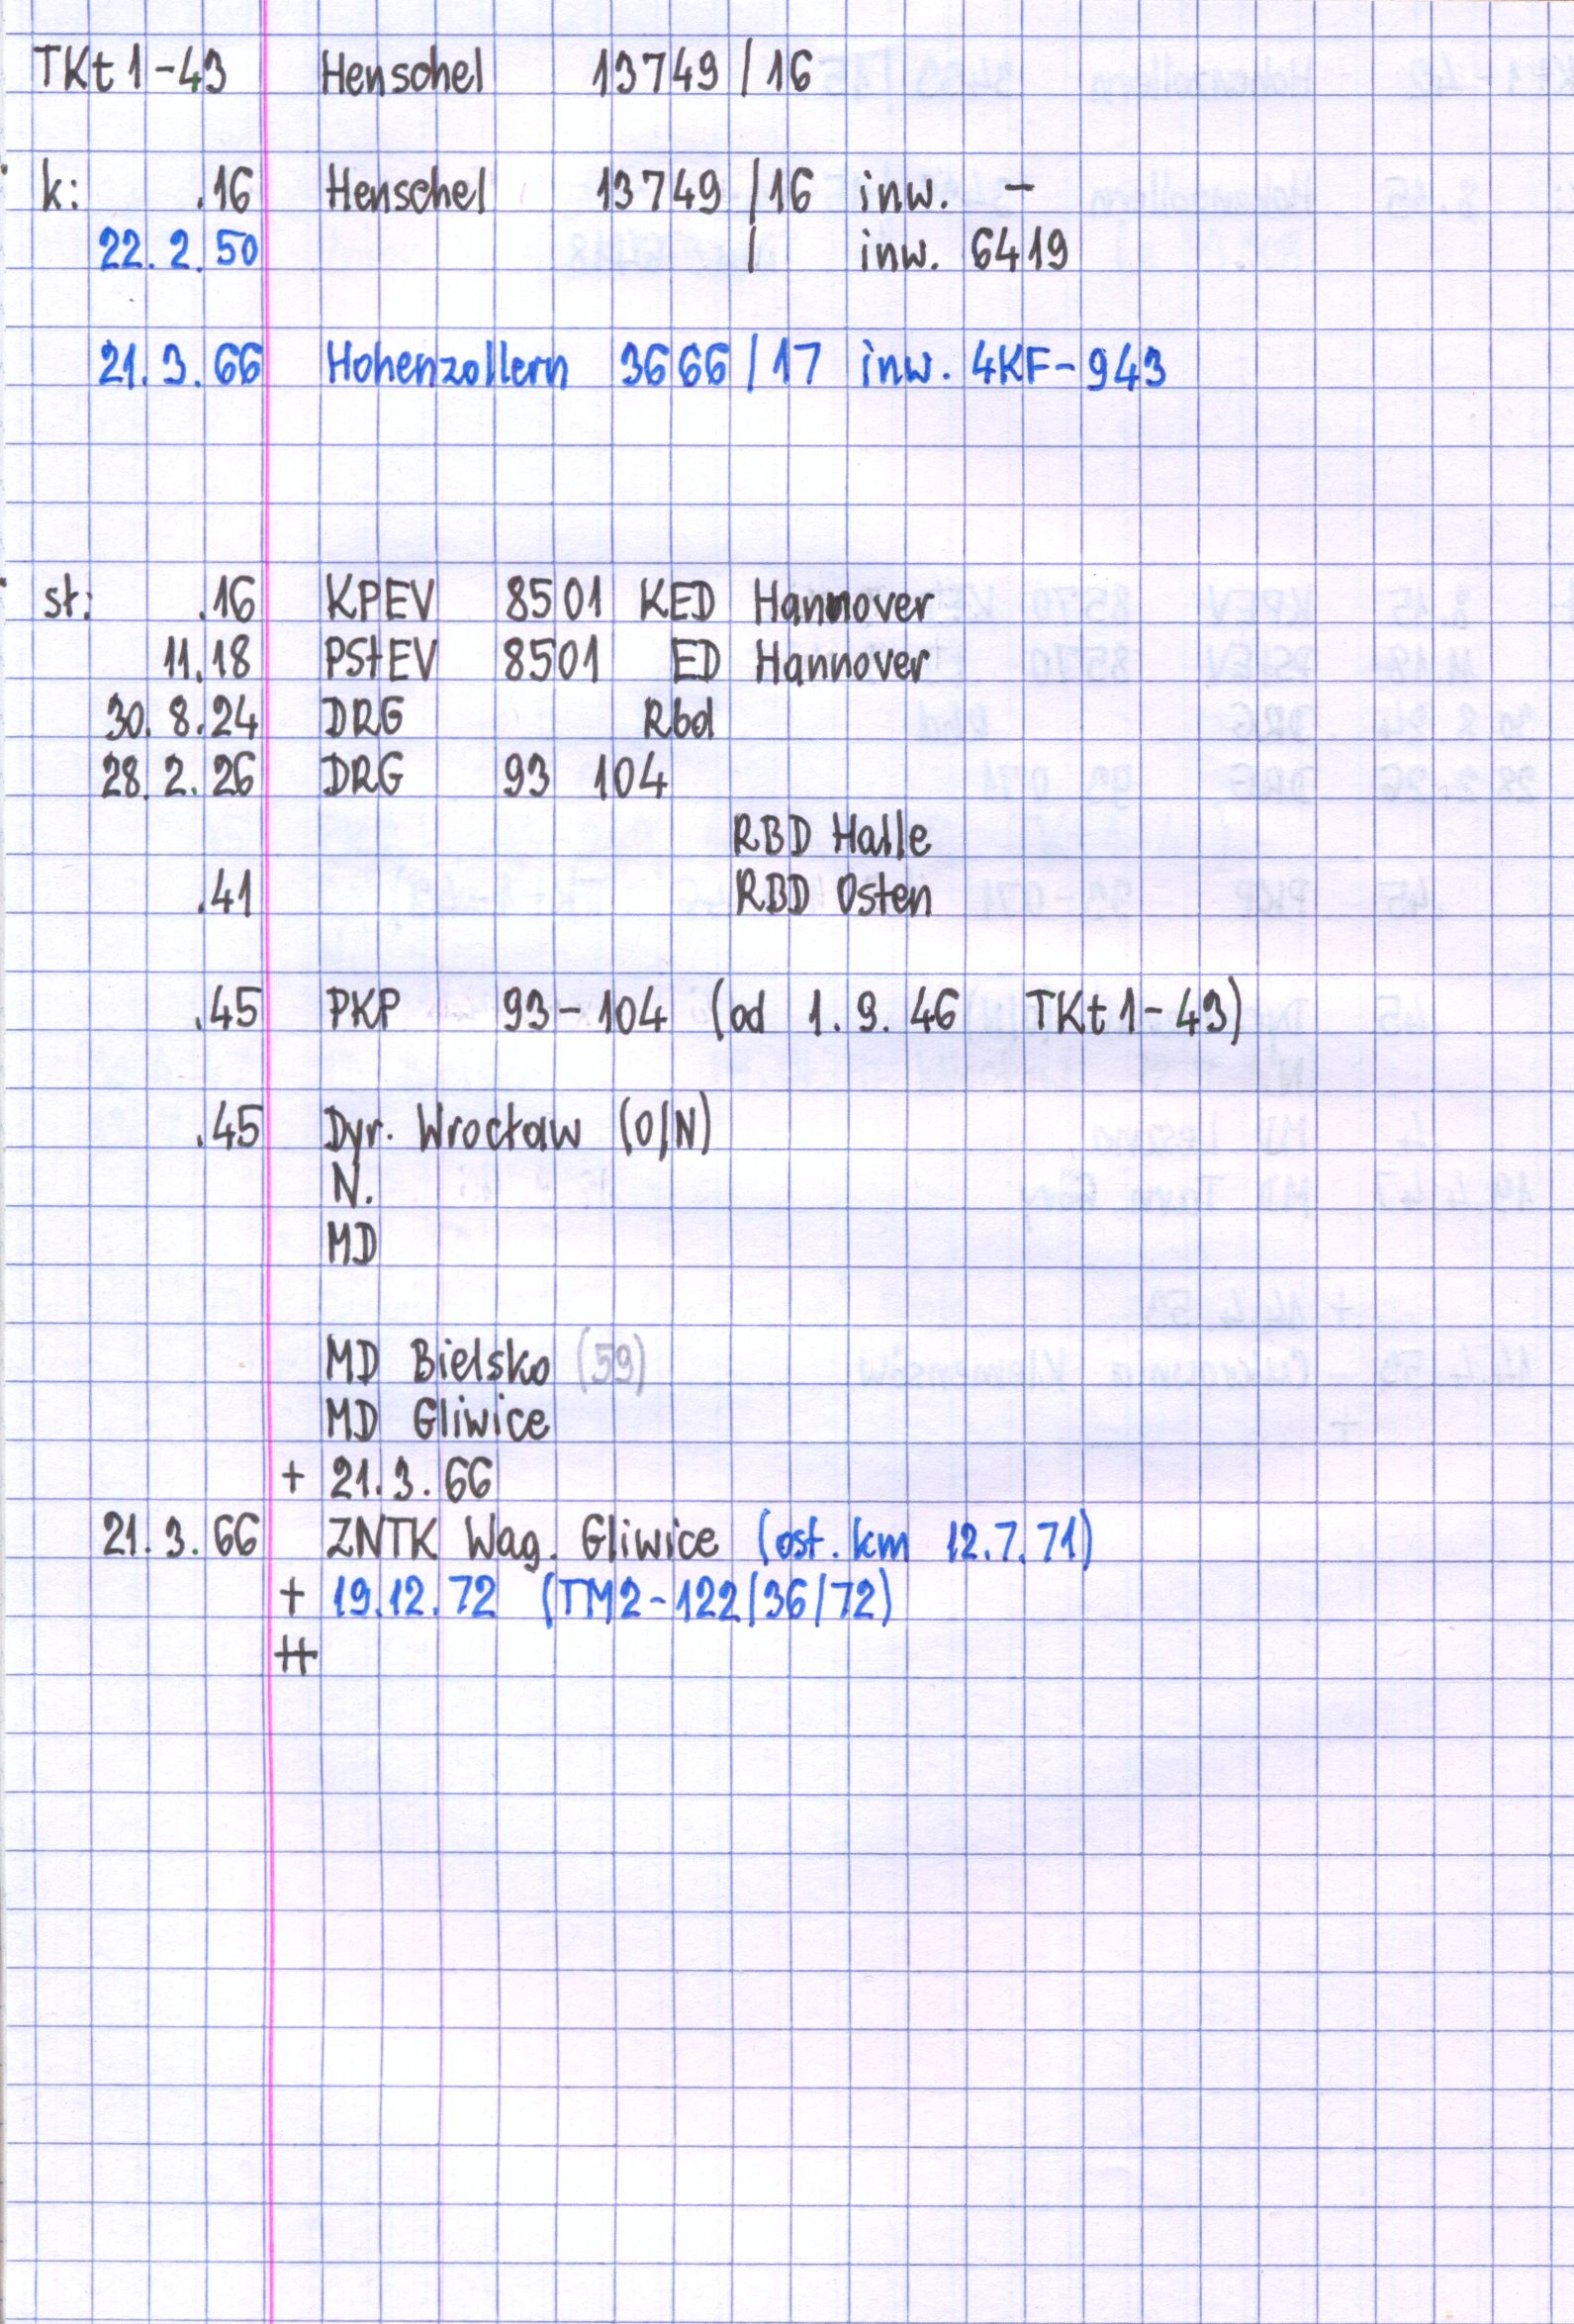 TKt 1-43 Henschel 13749/16
k: .16 Henschel 13749/16 inw. -
22.2.50 / inw. 6419
21.3.66 Hohenzollern 3666/17 inw. 4KF-943
st: .16 KPEV 8501 KED Hannover
11.18 PStEV 8501 ED Hannover
30.8.24 DRG Rbd
28.2.26 DRG 93 104
RBD Halle
.41 RBD Osten
.45 PKP 93-104 (od 1.9.46 TKt 1-43)
.45 Dyr. Wrocław (O/N)
N.
MD
MD Bielsko (59)
MD Gliwice
+ 21.3.66
21.3.66 ZNTK Wag. Gliwice (ost. km 12.7.71)
+ 19.12.72 (TM2-122/36/72)
++